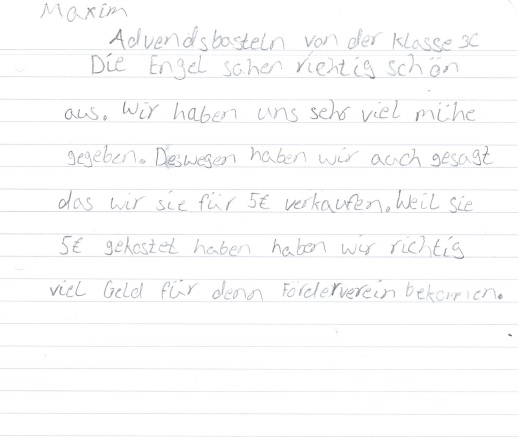 Maxim
Advendsbasteln von der Klasse 3C
Die Engel sahen richtig schön
aus. Wir haben uns sehr viel mühe
gegeben. Deswegen haben wir auch gesagt
das wir sie für 5€ verkaufen. Weil sie
5€ gekostet haben haben wir richtig
viel Geld für denn Förderverein bekommen.